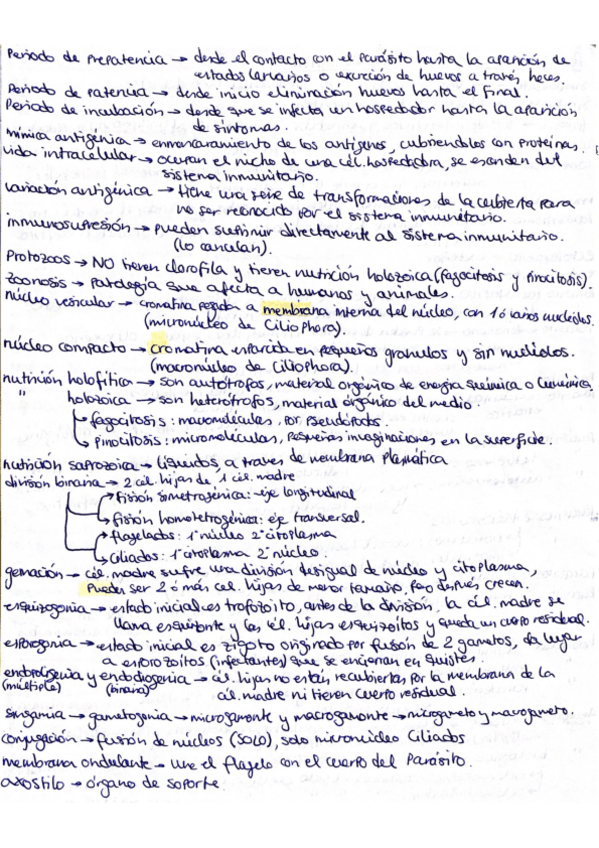 Periodo de prepatencia → desde el contacto con el parásito hasta la aparición de
estados larvarios o excreción de huevos a través heces.
Periodo de patencia → desde inicio eliminación huevos hasta el final.
Periodo de incubación → desde que se infecta un hospedador hasta la aparición
de síntomas.
mímica antigénica → enmascaramiento de los antígenos, cubriendolos con proteínas.
vida intracelular → ocupan el nicho de una cél. hospedadora, se esconden del
sistema inmunitario.
variación antigénica → tiene una serie de transformaciones de la cubierta para
no ser reconocido por el sistema inmunitario.
inmunosupresión → pueden suprimir directamente al sistema inmunitario.
(lo cancelan).
Protozoos → NO tienen clorofila y tienen nutrición holozoica (fagocitosis y pinocitosis).
zoonosis → patología que afecta a humanos y animales.
núcleo vesicular → cromatina pegada a membrana interna del núcleo, con 1 ó varios nucleolos.
(micronúcleo de Ciliophora).
núcleo compacto → cromatina esparcida en pequeños granulos y sin nucleolos.
(macronúcleo de Ciliophora).
nutrición holofítica → son autótrofos, material orgánico de energía química o lumínica.
" holozoica → son heterótrofos, material orgánico del medio.
→ fagocitosis: macromoléculas, por pseudópodos.
→ Pinocitosis: micromoléculas, pequeñas invaginaciones en la superficie.
nutrición saprozoica → líquidos, a traves de membrana plasmática
división binaria → 2 cél. hijas de 1 cél. madre
→ Fisión simetrogénica: eje longitudinal
→ fisión homotetogénica: eje transversal.
→ flagelados: 1º núcleo 2º citoplasma
→ Ciliados: 1º citoplasma 2º núcleo.
gemación → cél. madre sufre una división desigual de núcleo y citoplasma,
Pueden ser 2 ó más cel. hijas de menor tamaño, pero después crecen.
esquizogonia → estado inicial es trofozoíto, antes de la división, la cél. madre se
llama esquizonte y las cél. hijas esquizoítos y queda un cuerpo residual.
esporogonia → estado inicial es zigoto originado por fusión de 2 gametos, da lugar
a esporozoítos (infectantes) que se encierran en quistes.
endopoligenia y endodiogenia → cél. hijas no están recubiertas por la membrana de la
(múltiple) (binaria) cél. madre ni tienen cuerpo residual.
singamia → gametogonia → microgamonte y macrogamonte → microgameto y macrogameto.
conjugación → fusión de núcleos (SOLO), solo micronúcleo Ciliados
membrana ondulante → une el flagelo con el cuerpo del parásito.
axostilo → órgano de soporte.